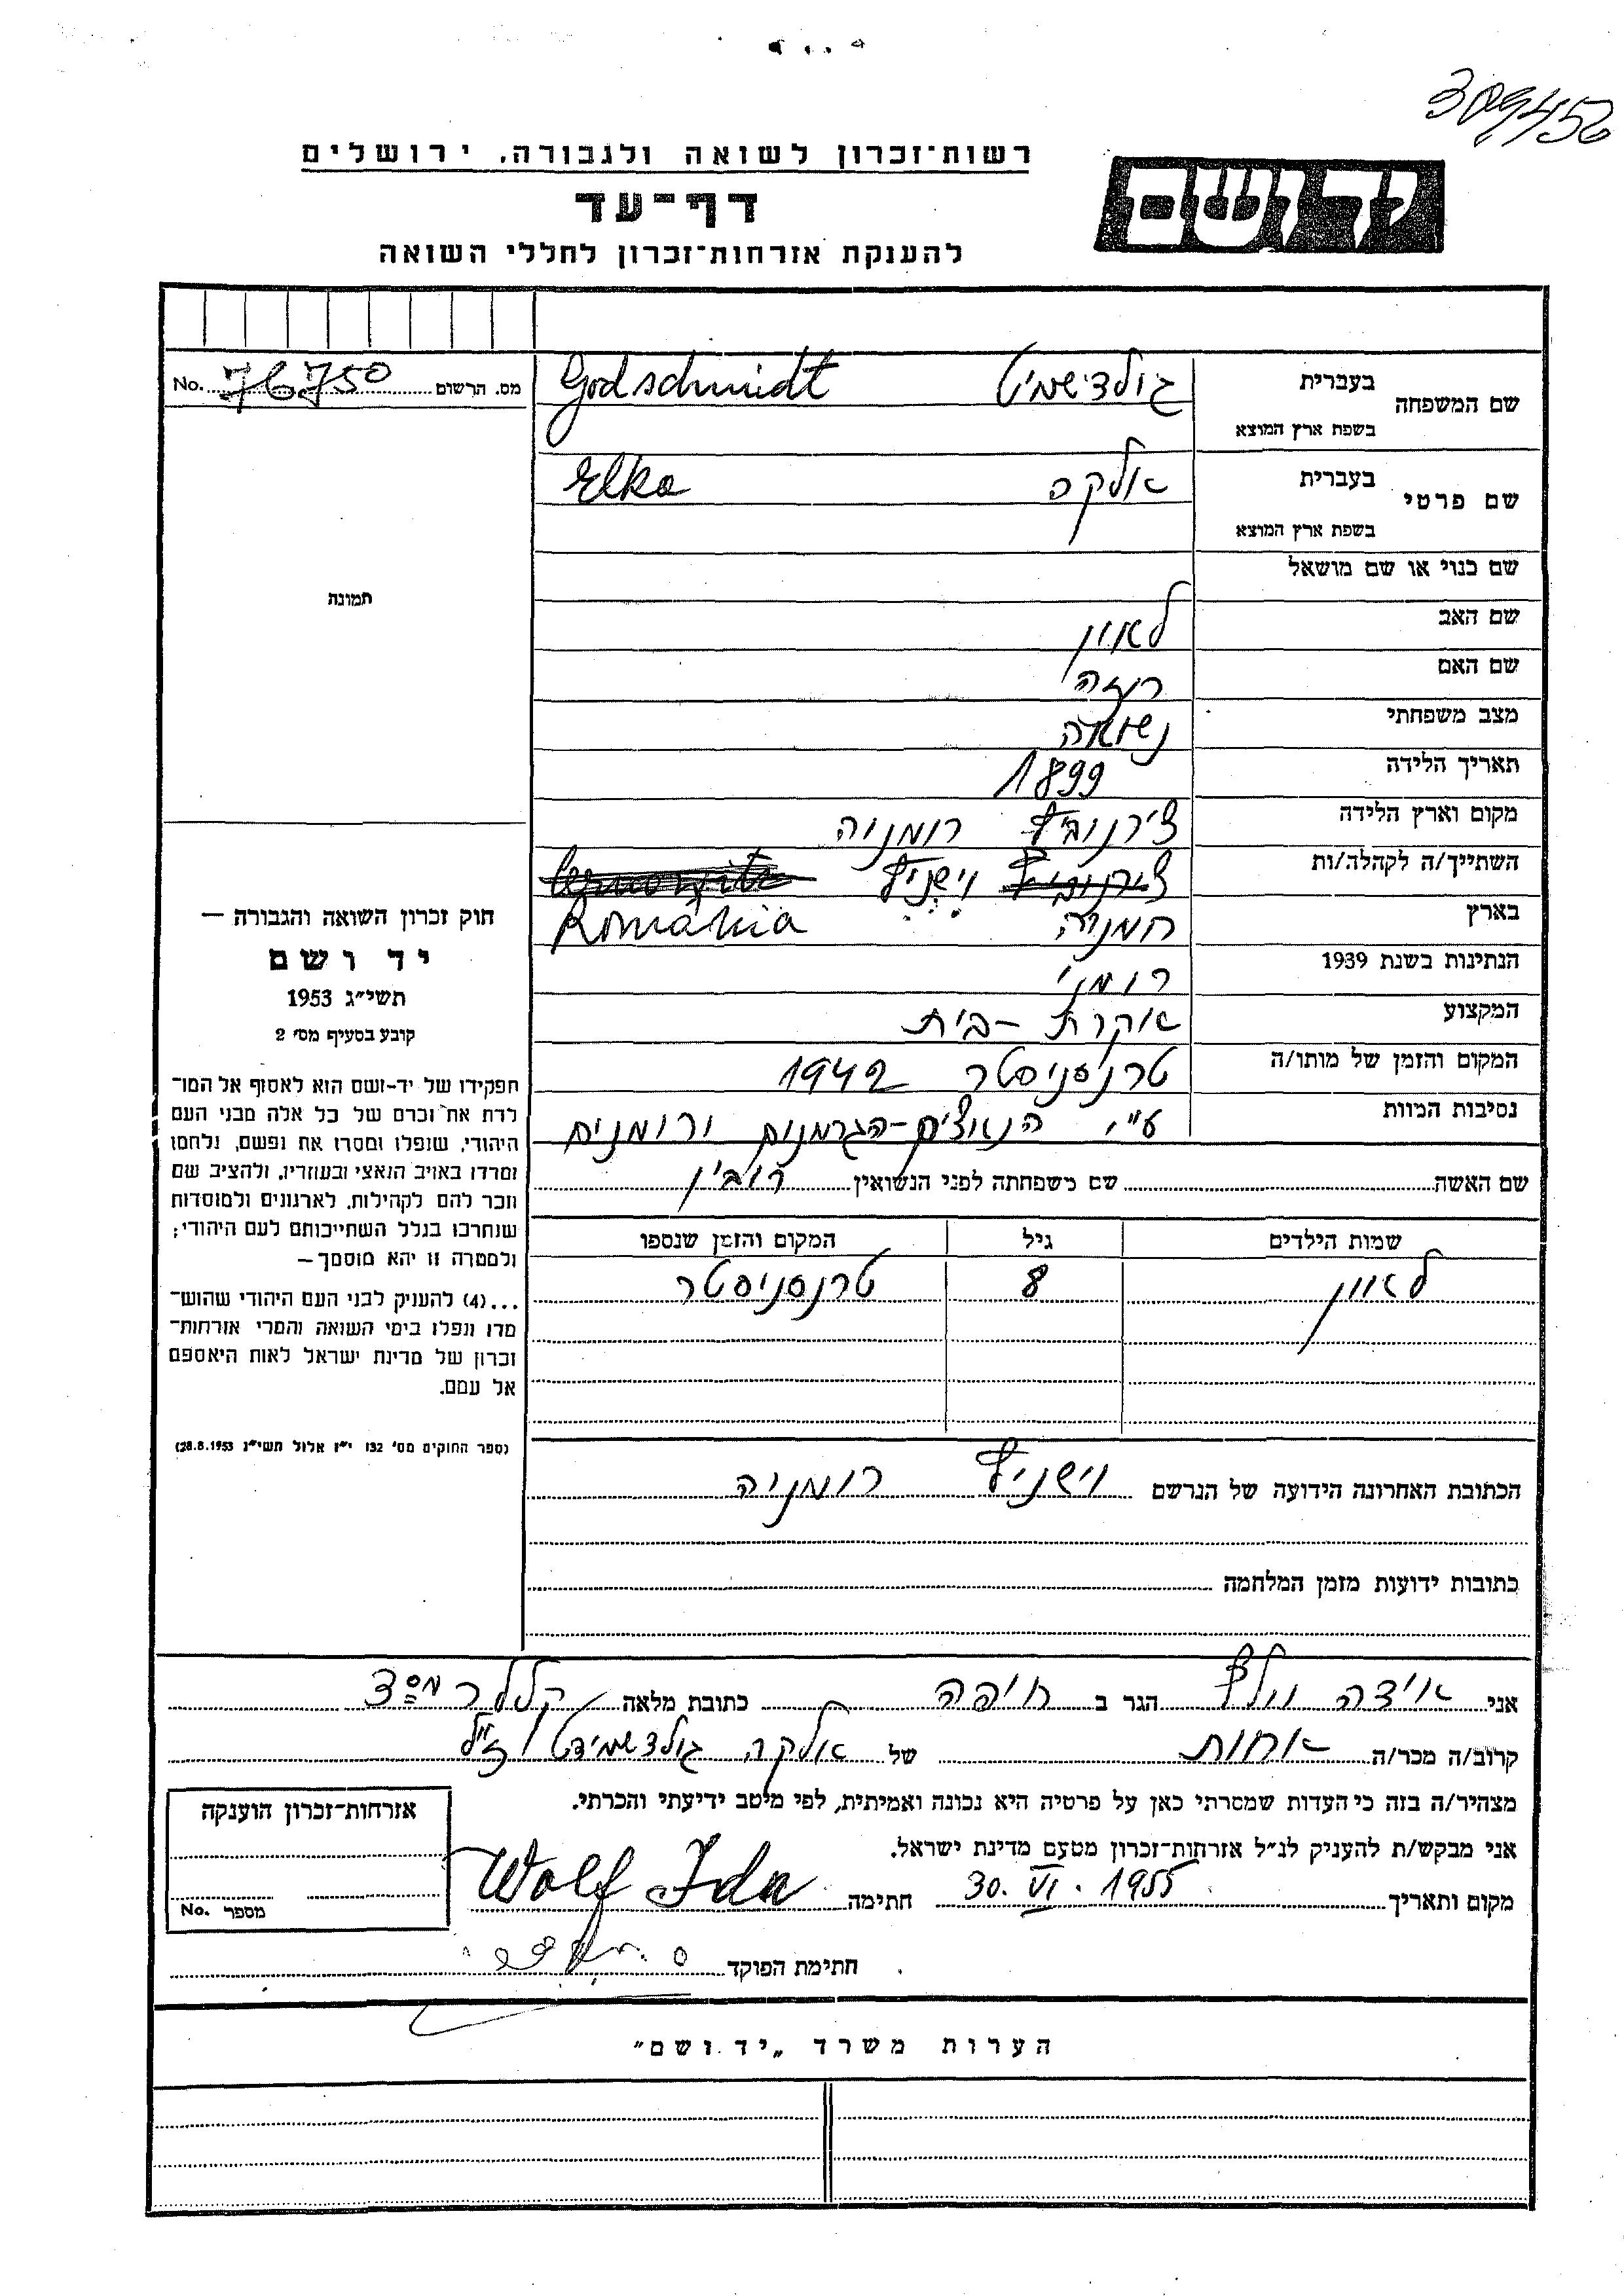 309450
רשות־זכרון לשואה ולגבורה, ירושלים
יד ושם
דף־עד
להענקת אזרחות־זכרון לחללי השואה
מס. הרשום No. 76750
שם המשפחה בעברית גולדשמיט Godschmidt
בשפת ארץ המוצא
שם פרטי בעברית אלקה Elka
בשפת ארץ המוצא
שם כנוי או שם מושאל
שם האב לאון
שם האם רוזה
מצב משפחתי נשואה
תאריך הלידה 1899
מקום וארץ הלידה צ'רנוביץ רומניה
השתייך/ה לקהלה/ות וישניץ
בארץ רומניה Romania
הנתינות בשנת 1939 רומני
המקצוע עקרת-בית
המקום והזמן של מותו/ה טרנסניסטר 1942
נסיבות המוות ע"י הנאצים-הגרמנים ורומנים
שם האשה שם משפחתה לפני הנשואין רובין
שמות הילדים גיל המקום והזמן שנספו
לאון 8 טרנסניסטר
הכתובת האחרונה הידועה של הנרשם וישניץ רומניה
כתובות ידועות מזמן המלחמה
תמונה
חוק זכרון השואה והגבורה —
יד ושם
תשי״ג 1953
קובע בסעיף מס׳ 2
תפקידו של יד-ושם הוא לאסוף אל המו־
לדת את זכרם של כל אלה מבני העם
היהודי, שנפלו ומסרו את נפשם, נלחמו
ומרדו באויב הנאצי ובעוזריו, ולהציב שם
וזכר להם לקהילות, לארגונים ולמוסדות
שנחרבו בגלל השתייכותם לעם היהודי;
ולמטרה זו יהא מוסמך—
...(4) להעניק לבני העם היהודי שהוש־
מדו ונפלו בימי השואה והמרי אזרחות־
זכרון של מדינת ישראל לאות היאספם
אל עמם.
(ספר החוקים מס׳ 132 י״ז אלול תשי״ג 28.8.1953)
אני אידה וולף הגר ב חיפה כתובת מלאה
קרוב/ה מכר/ה אחות של אלקה גולדשמידט ז"ל
מצהיר/ה בזה כי העדות שמסרתי כאן על פרטיה היא נכונה ואמיתית, לפי מיטב ידיעתי והכרתי.
אני מבקש/ת להעניק לנ״ל אזרחות־זכרון מטעם מדינת ישראל.
מקום ותאריך 30. VI. 1955 חתימה Wolf Ida
חתימת הפוקד
אזרחות־זכרון הוענקה
מספר No.
הערות משרד „יד ושם״